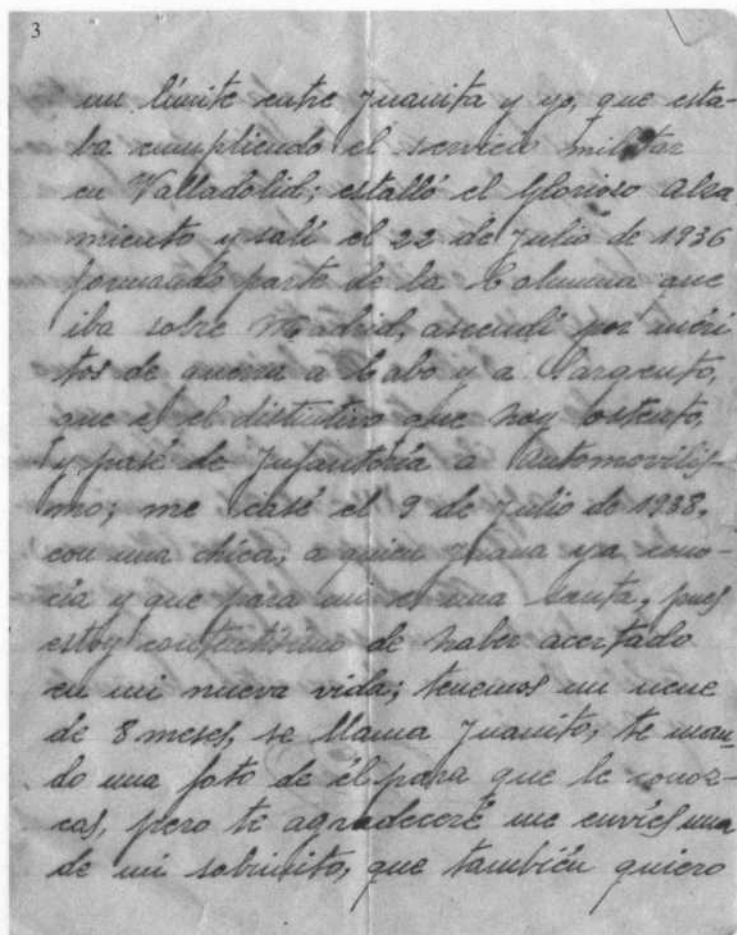 3
un límite entre Juanita y yo, que esta-
ba cumpliendo el servicio militar
en Valladolid; estalló el Glorioso Alza
miento y salí el 22 de Julio de 1936
formando parte de la Columna que
iba sobre Madrid, ascendí por méri
tos de guerra a Cabo y a Sargento,
que es el distintivo que hoy ostento,
y pasé de Infantería a Automovilis-
mo; me casé el 9 de Julio de 1938,
con una chica, a quien Juana ya cono-
cía y que para mi es una santa, pues
estoy contentísimo de haber acertado
en mi nueva vida; tenemos un nene
de 8 meses, se llama Juanito, te man-
do una foto de él para que le conoz-
cas, pero te agradeceré me envíes una
de mi sobrinito, que también quiero